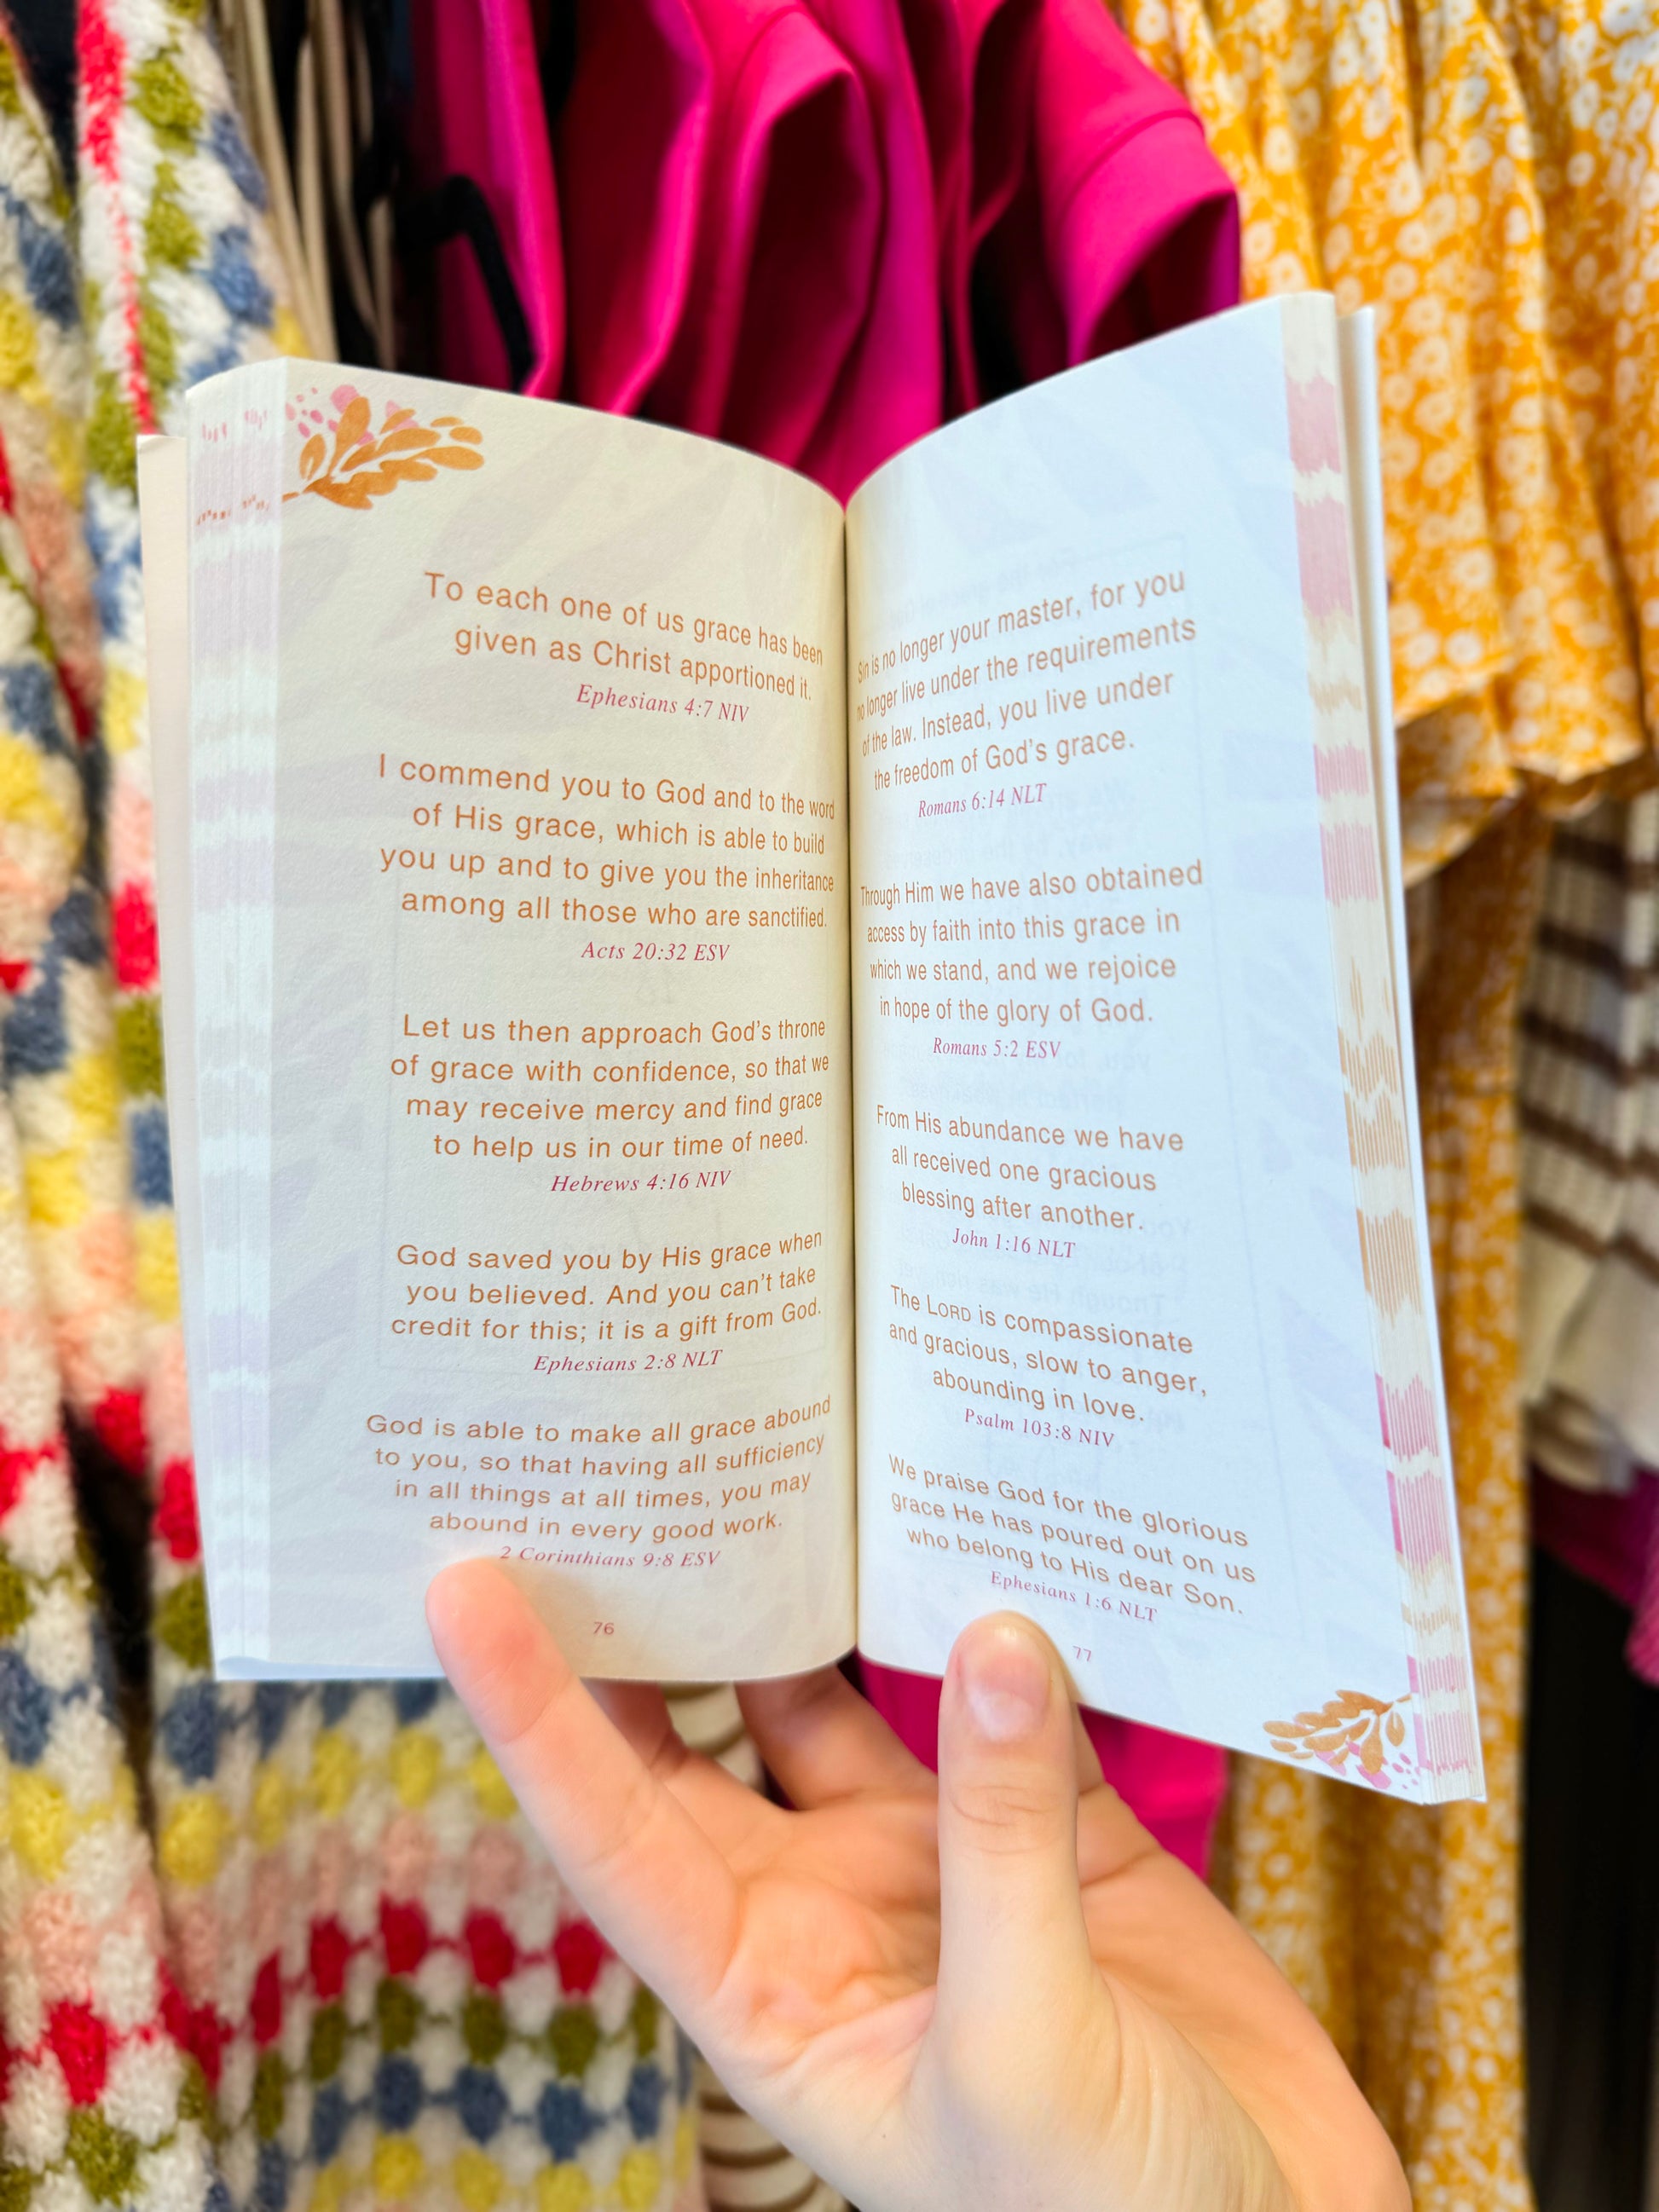 To each one of us grace has been
given as Christ apportioned it.
Ephesians 4:7 NIV
I commend you to God and to the word
of His grace, which is able to build
you up and to give you the inheritance
among all those who are sanctified.
Acts 20:32 ESV
Let us then approach God's throne
of grace with confidence, so that we
may receive mercy and find grace
to help us in our time of need.
Hebrews 4:16 NIV
God saved you by His grace when
you believed. And you can't take
credit for this; it is a gift from God.
Ephesians 2:8 NLT
God is able to make all grace abound
to you, so that having all sufficiency
in all things at all times, you may
abound in every good work.
2 Corinthians 9:8 ESV
76
Sin is no longer your master, for you
no longer live under the requirements
of the law. Instead, you live under
the freedom of God's grace.
Romans 6:14 NLT
Through Him we have also obtained
access by faith into this grace in
which we stand, and we rejoice
in hope of the glory of God.
Romans 5:2 ESV
From His abundance we have
all received one gracious
blessing after another.
John 1:16 NLT
The LORD is compassionate
and gracious, slow to anger,
abounding in love.
Psalm 103:8 NIV
We praise God for the glorious
grace He has poured out on us
who belong to His dear Son.
Ephesians 1:6 NLT
77